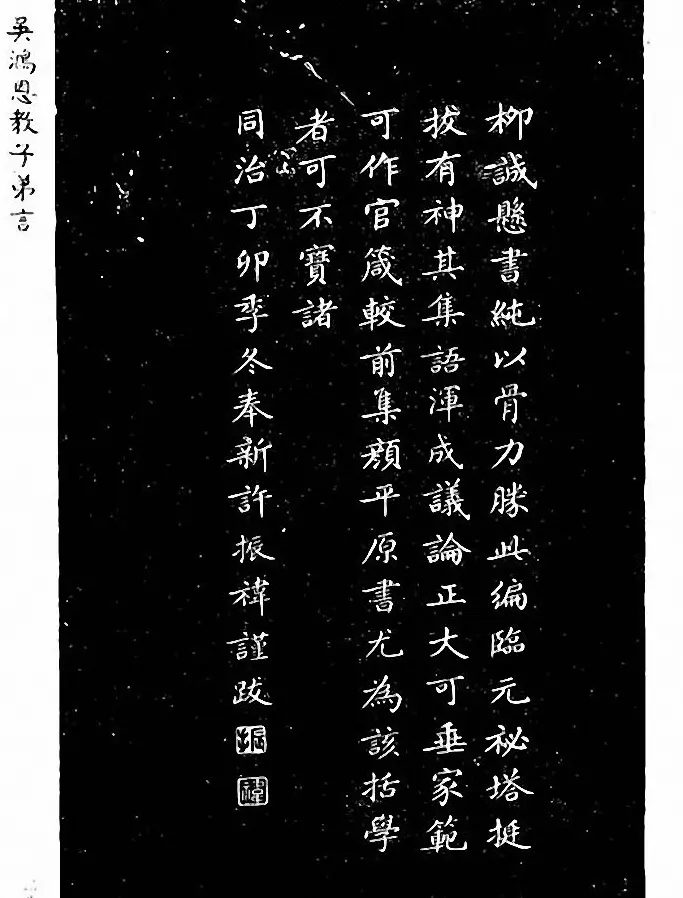 柳誠懸書純以骨力勝此編臨元祕塔挺
拔有神其集語渾成議論正大可垂家範
可作官箴較前集顏平原書尤為該括學
者可不寶諸
同治丁卯季冬奉新許振禕謹跋
振
禕
吳鴻恩教子弟言